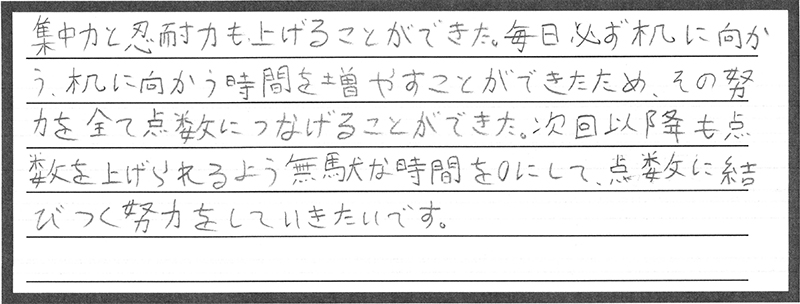 集中力と忍耐力も上げることができた。毎日必ず机に向か
う、机に向かう時間を増やすことができたため、その努
力を全て点数につなげることができた。次回以降も点
数を上げられるよう無駄な時間を0にして、点数に結
びつく努力をしていきたいです。